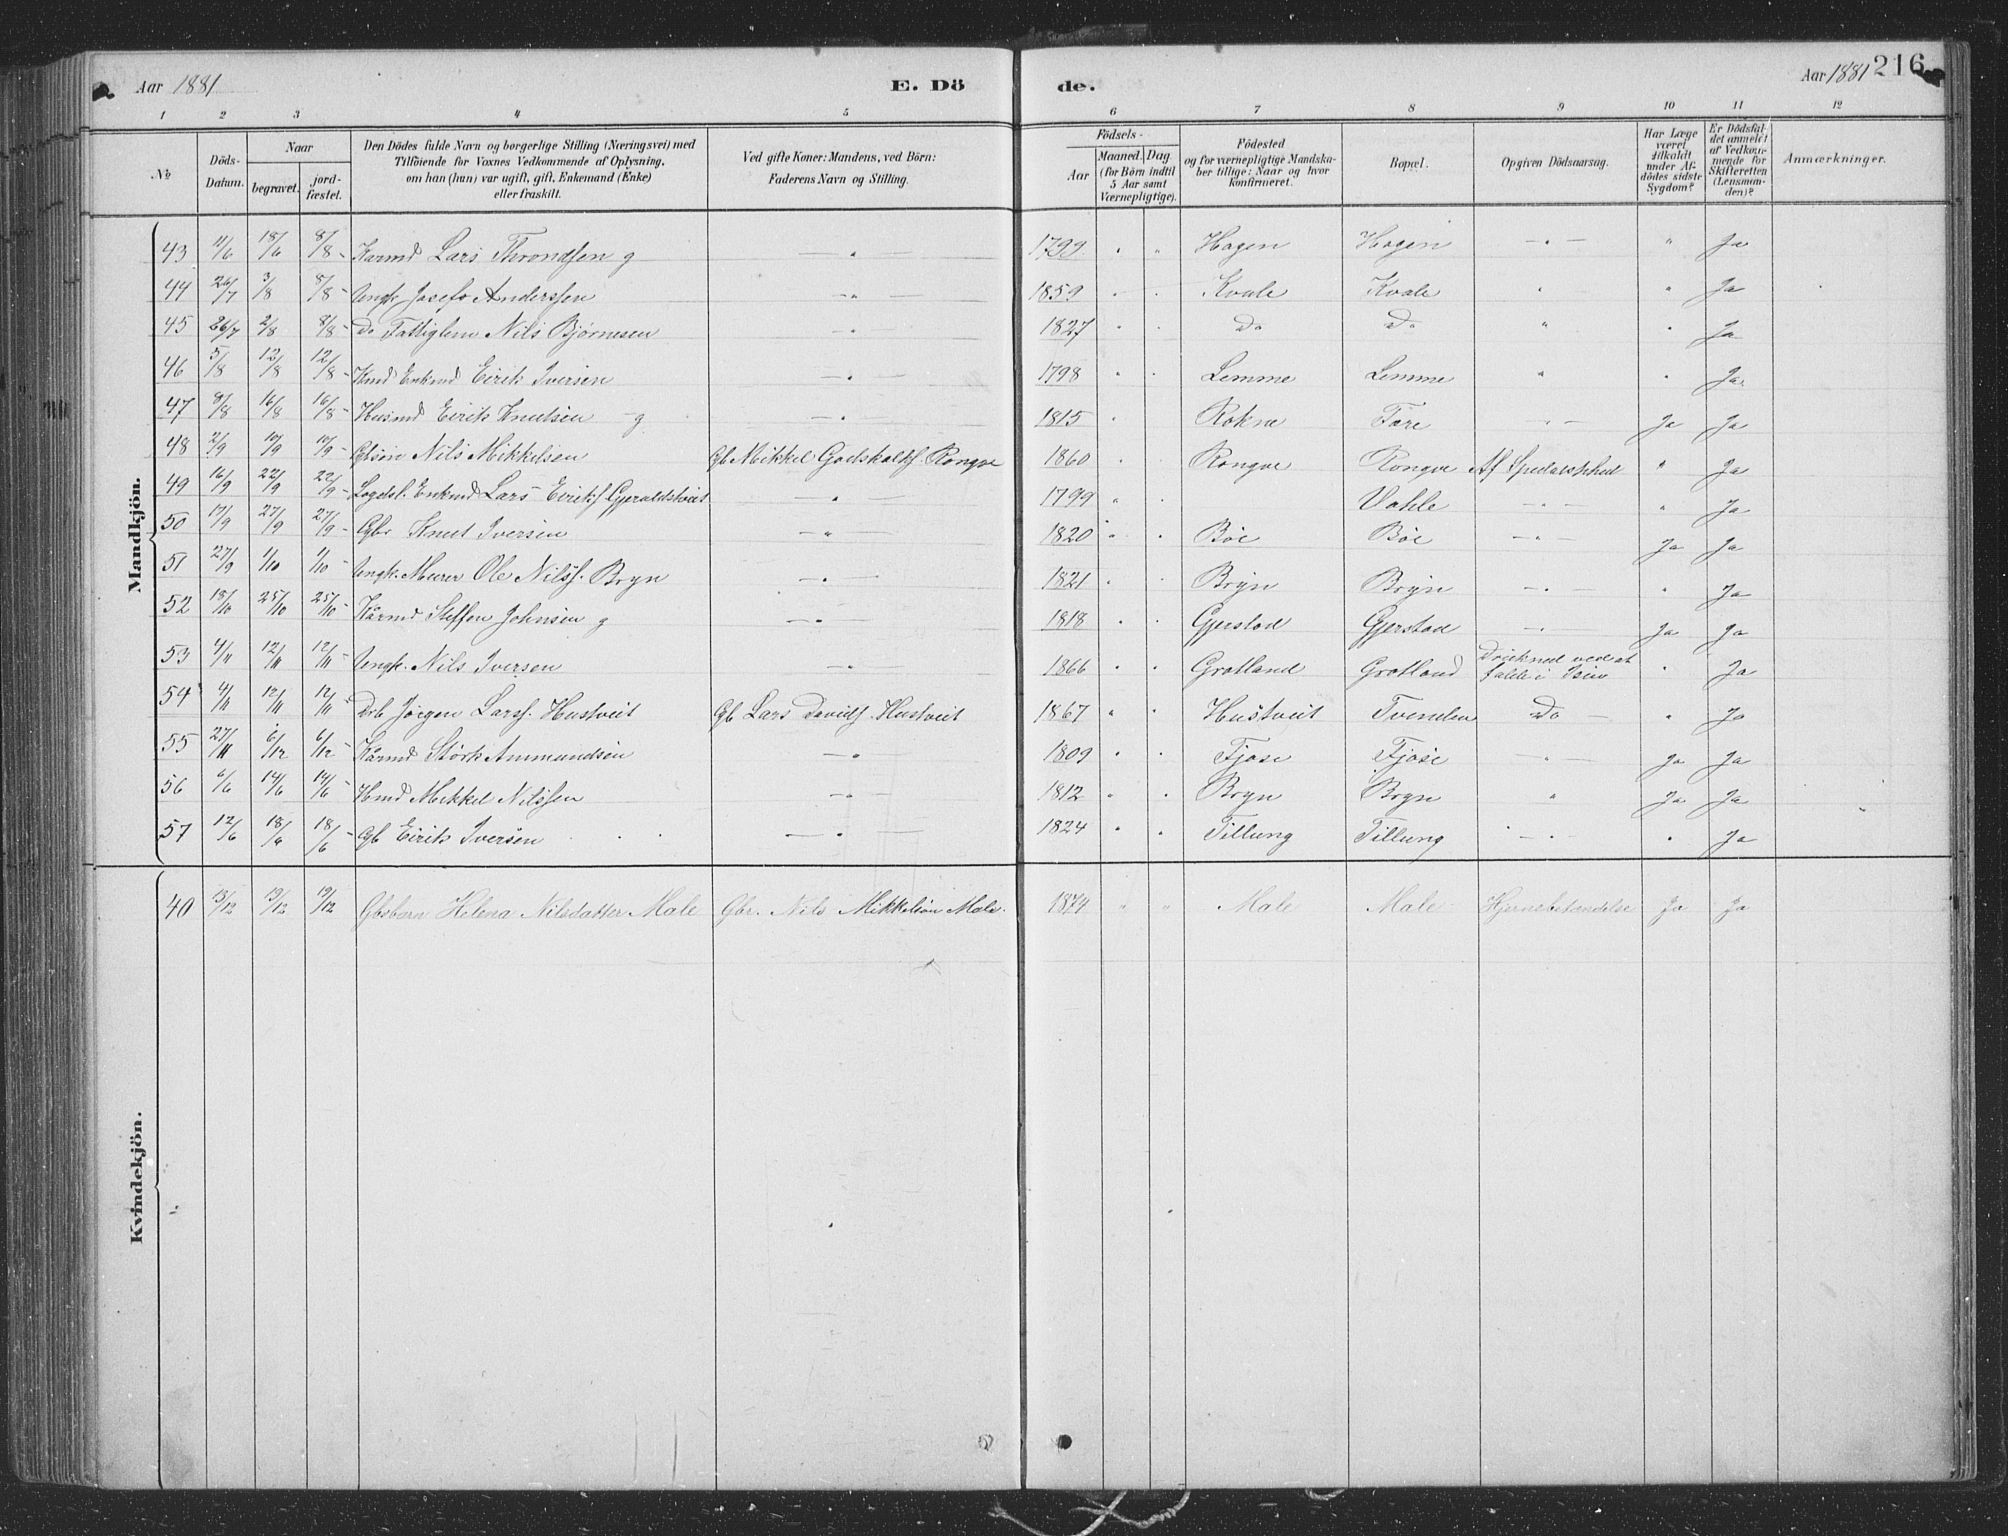 Aar 1881 E. Dö de. Aar 1881 216
1 2 3 4 5 6 7 8 9 10 11 12
№ Döds-Datum. Naar begravet. jord-fæstet. Den Dödes fulde Navn og borgerlige Stilling (Næringsvei) med Tilföiende for Voxnes Vedkommende af Oplysning, om han (hun) var ugift, gift, Enkemand (Enke) eller fraskilt. Ved gifte Koner: Mandens, ved Börn: Faderens Navn og Stilling. Födsels- Aar Maaned. Dag (for Börn indtil 5 Aar samt Værnepligtige). Födested og for værnepligtige Mandskaber tillige: Naar og hvor konfirmeret. Bopæl. Opgiven Dödsaarsag. Har Læge været tilkaldt under Afdödes sidste Sygdom? Er Dödsfaldet anmeldt af Vedkommende for Skifteretten (Lensmanden)? Anmærkninger.
Mandkjön.
43 11/6 18/6 8/8 - Kaarmd Lars Throndsen g — " — 1799 " " Hagen Hagen — " — " Ja
44 26/7 3/8 8/8 - Ungk. Josefo Anderssen — " — 1859 " " Kvale Kvale " " Ja
45 26/7 2/8 8/8 - Do Fattiglem Nils Bjørnesen — " — 1827 " " Do Do " " Ja
46 5/8 12/8 12/8 - Kmd Enkmd Eirik Iversen — " — 1798 " " Lemme Lemme " " Ja
47 8/8 16/8 16/8 - Husmd Eirik Knutsen g — " — 1815 " Rokne Fære — " — Ja Ja
48 2/9 10/9 10/9 - Gbsøn Nils Mikkelsen Gb Mikkel Godskalks. Rongve 1860 " " Rongve Rongve Af Spedalskhed " Ja
49 16/9 22/9 22/9 - Logdsl. Enkmd Lars Eiriks. Gjeraldstveit — " — 1799 " Vahle — " — " Ja
50 17/9 27/9 27/9 - Gbr Knut Iversen — " — 1820 " " Bøe Bøe — " — Ja Ja
51 27/9 1/10 1/10 - Ungk. Murer Ole Nilss. Bryn — " — 1821 " " Bryn Bryn — " — " Ja
52 18/10 25/10 25/10 - Kårmd Steffen Johnsen g — " — 1818 " " Gjerstad Gjerstad — " — Ja Ja
53 4/11 12/11 12/11 - Ungk. Nils Iversen — " — 1866 " " Grotland Grotland Drukned ved at falde i Isen " Ja
54 4/11 12/11 12/11 Drb Jørgen Larss. Hustveit Gb Lars Davids. Hustveit 1867 " " Hustveit Tvenden Do — " Ja
55 27/11 6/12 6/12 - Kårmd Størk Ammundsen — " — 1809 " " Fjose Fjose " — Ja Ja
56 6/6 14/6 14/6 - Hmd Mikkel Nilssen — " — 1812 " " Bryn Bryn " Ja Ja
57 12/6 18/6 18/6 - Gb Eirik Iversen — " — 1824 " " Tillung Tillung — " — " Ja
Kvindekjön.
40 13/12 19/12 19/12 Gbsbarn Helena Nilsdatter Male Gbr. Nils Mikkelsøn Male. 1874 " " Male Male Hjernebetændelse Ja Ja